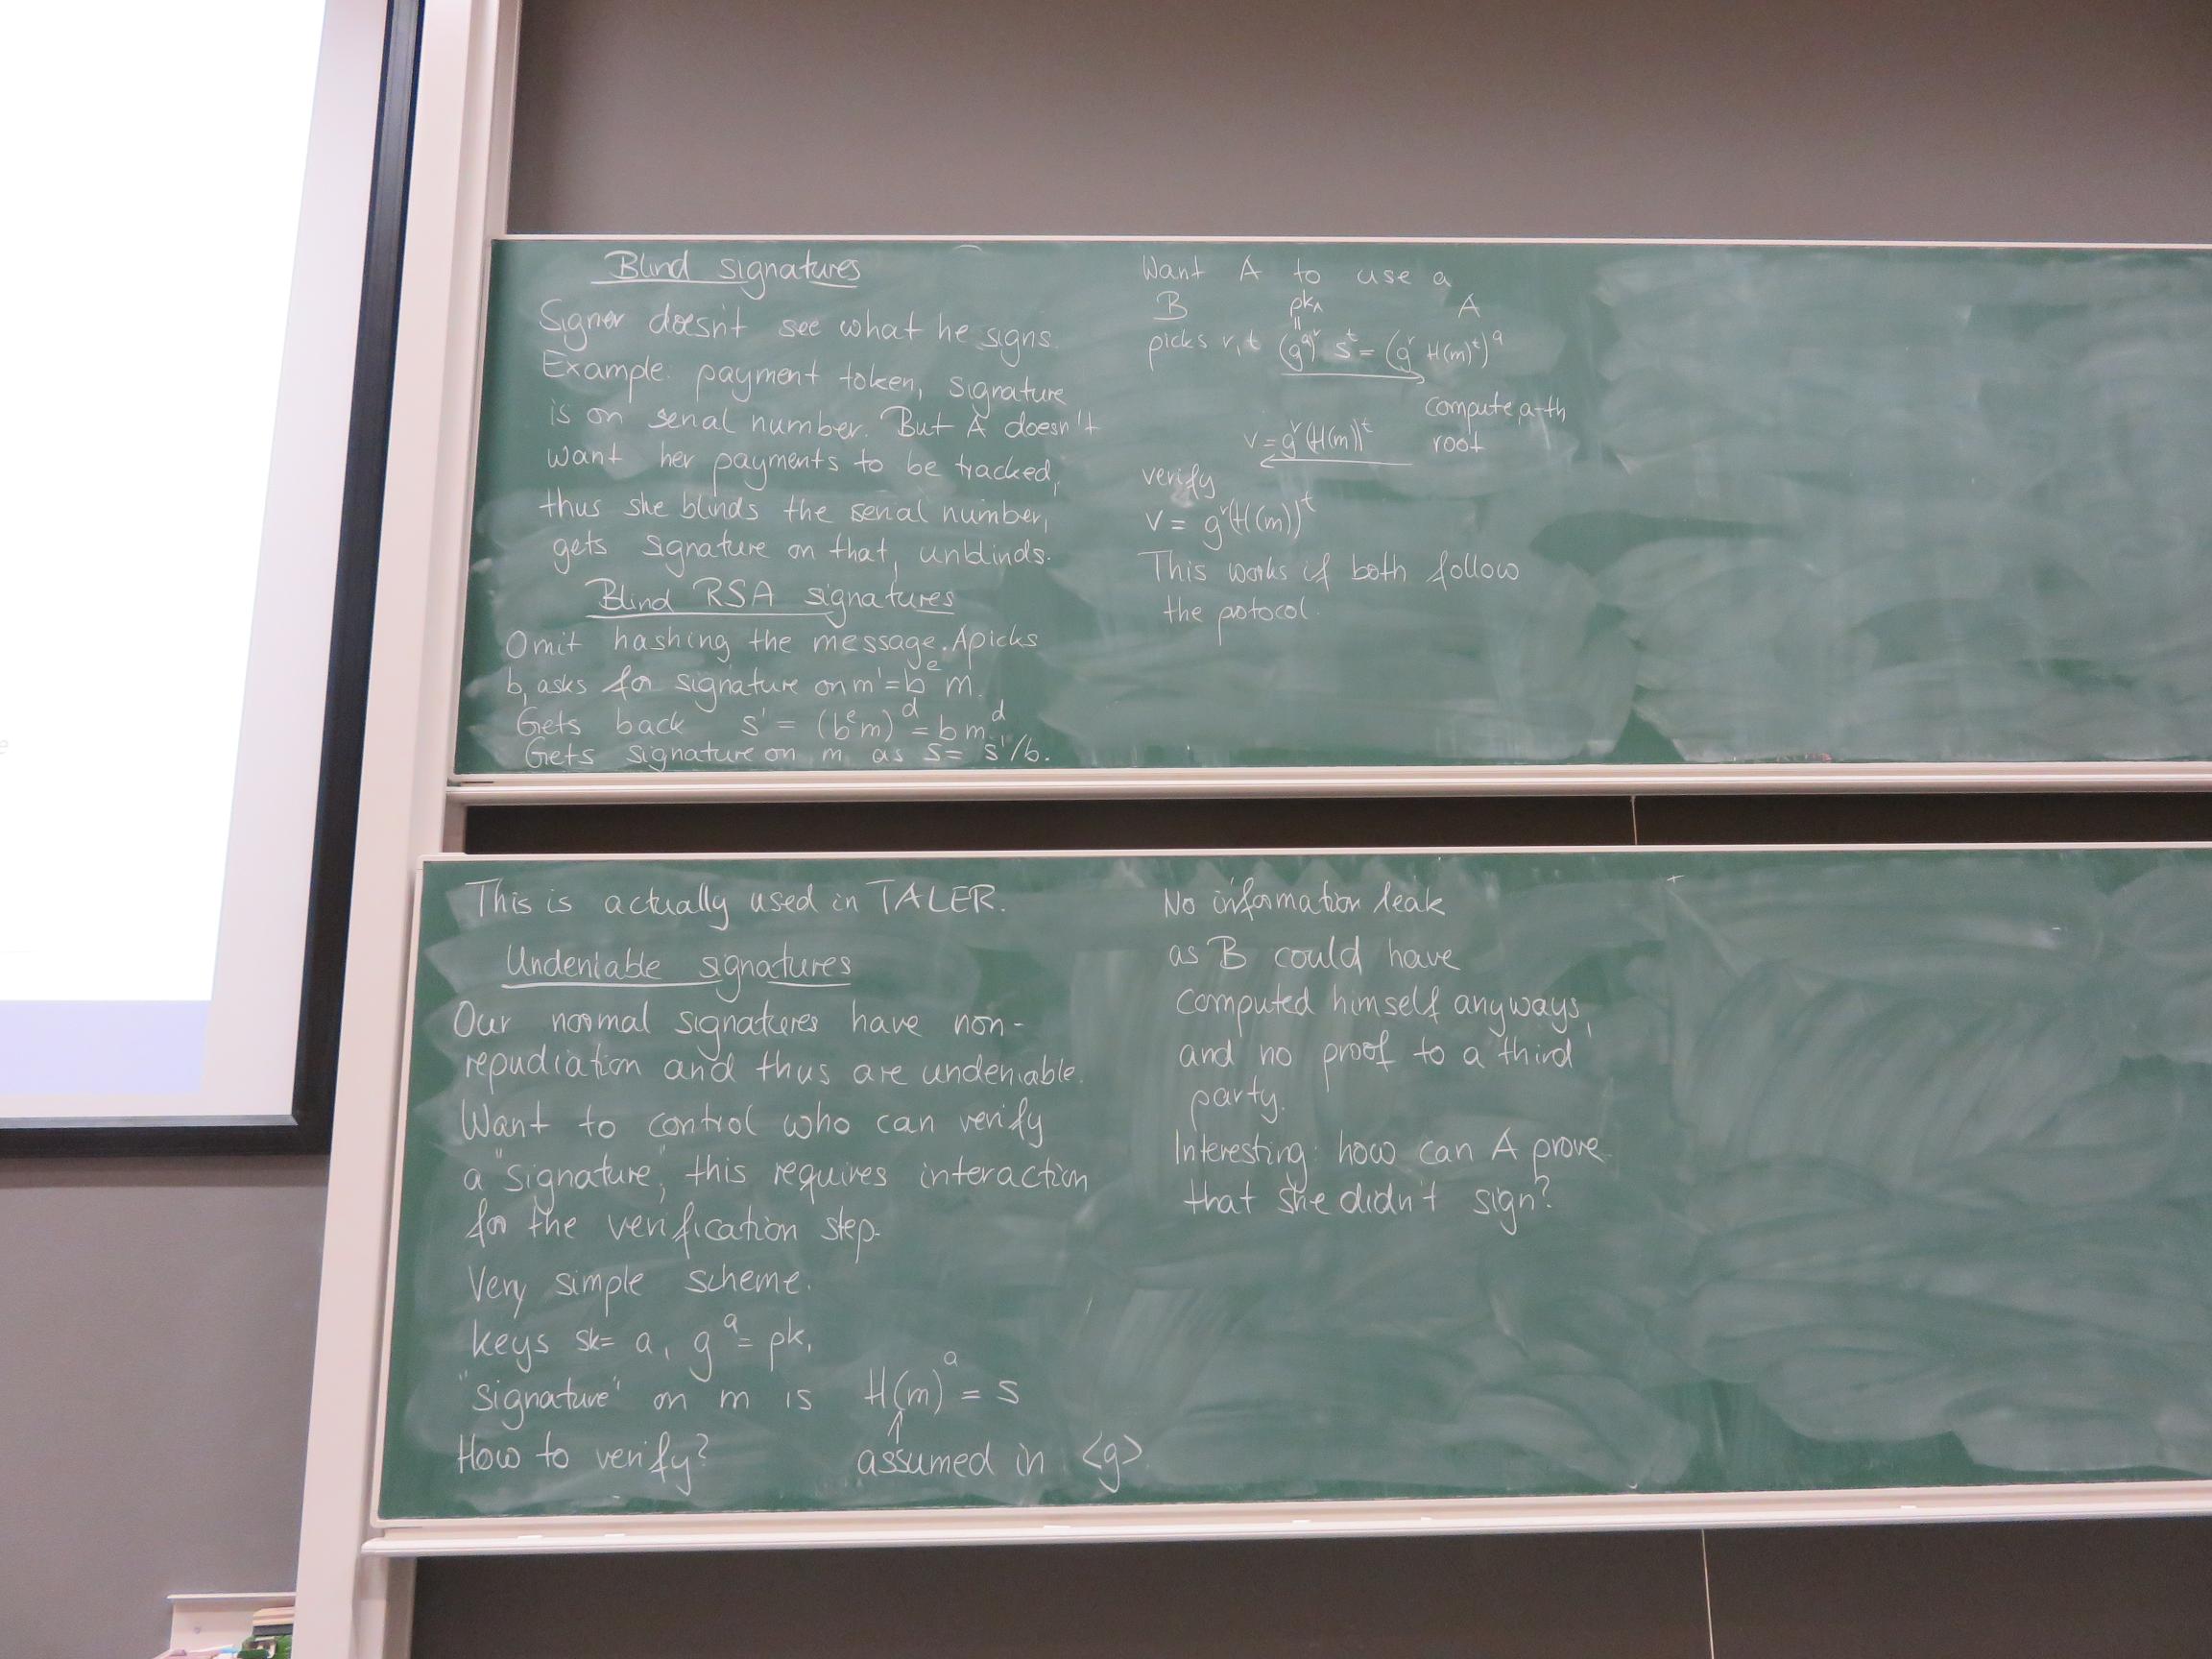 Blind signatures
Signer doesn't see what he signs.
Example: payment token, signature
is on serial number. But A doesn't
want her payments to be tracked,
thus she blinds the serial number,
gets signature on that, unblinds.
Blind RSA signatures
Omit hashing the message. A picks
b, asks for signature on m' = b^e m.
Gets back s' = (b^e m)^d = b m^d
Gets signature on m as s = s'/b.
Want A to use a
B pk_A A
||
picks r,t (g^a)^r s^t = (g^r H(m)^t)^a
compute a-th
v = g^r (H(m))^t root
verify
v = g^r (H(m))^t
This works if both follow
the potocol.
This is actually used in TALER.
Undeniable signatures
Our normal signatures have non-
repudiation and thus are undeniable.
Want to control who can verify
a "signature", this requires interaction
for the verification step.
Very simple scheme.
keys sk = a, g^a = pk,
"signature" on m is H(m)^a = s
↑
How to verify? assumed in <g>
No information leak
as B could have
computed himself anyways,
and no proof to a third
party.
Interesting: how can A prove
that she didn't sign?